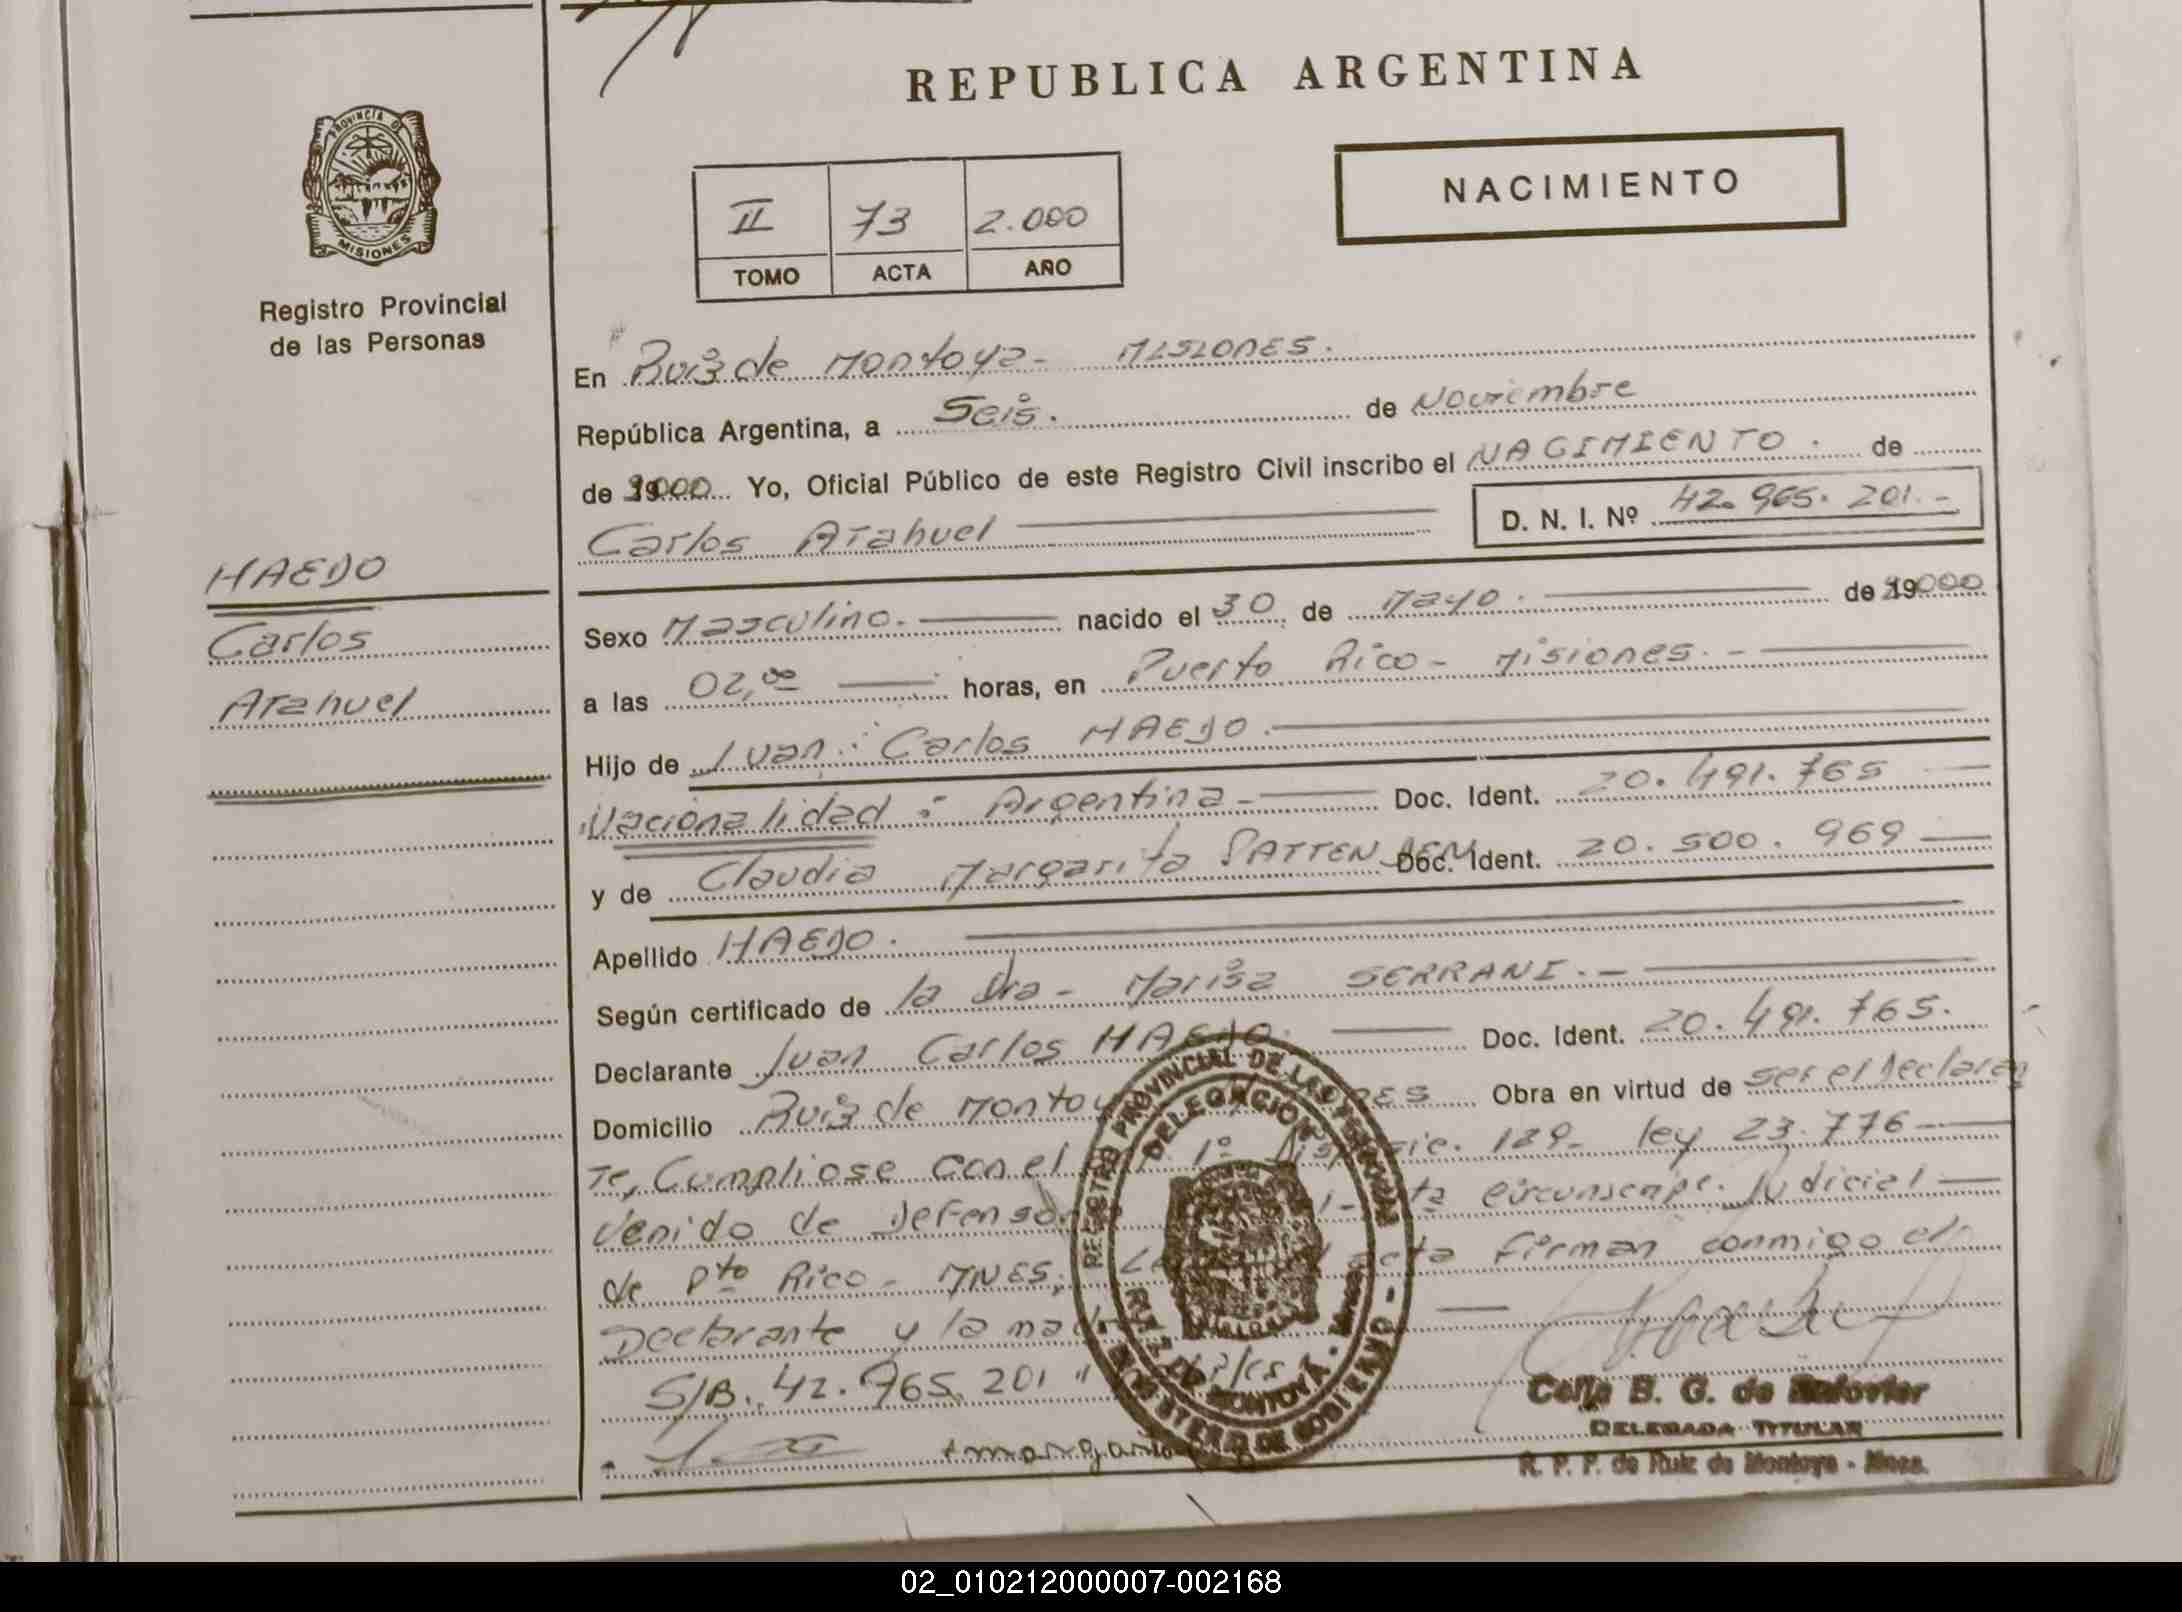 REPUBLICA ARGENTINA
PROVINCIA DE
MISIONES
Registro Provincial
de las Personas
NACIMIENTO
II 73 2.000
TOMO ACTA AÑO
En Ruiz de Montoya - MISIONES.
República Argentina, a Seis. de Noviembre
de 2000 Yo, Oficial Público de este Registro Civil inscribo el NACIMIENTO. de
Carlos Arahuel D. N. I. Nº 42.965.201.-
HAEDO
Carlos
Arahuel
Sexo Masculino. nacido el 30 de Mayo. de 2000
a las 02,00 horas, en Puerto Rico - Misiones. -
Hijo de Juan Carlos HAEDO.
Nacionalidad: Argentina - Doc. Ident. 20.491.765
y de Claudia Margarita Doc. Ident. 20.500.969
Apellido HAEDO.
Según certificado de la Dra - Marisa SERRANI. -
Declarante Juan Carlos HAEDO. Doc. Ident. 20.491.765.
Domicilio Ruiz de Obra en virtud de ser el declaran
te, Cumpliose con el 1º 129- ley 23.776
venido de circunscripc. Judicial
de Pto Rico - MNES, acta firman conmigo el
Declarante y la
S/B. 42.965.201 "
REGISTRO PROVINCIAL DE LAS PERSONAS
DELEGACION
RUIZ DE MONTOYA - Mnes
MINISTERIO DE GOBIERNO
Celia B. G. de
DELEGADA TITULAR
R. P. P. de Ruiz de Montoya - Mnes.
02_010212000007-002168